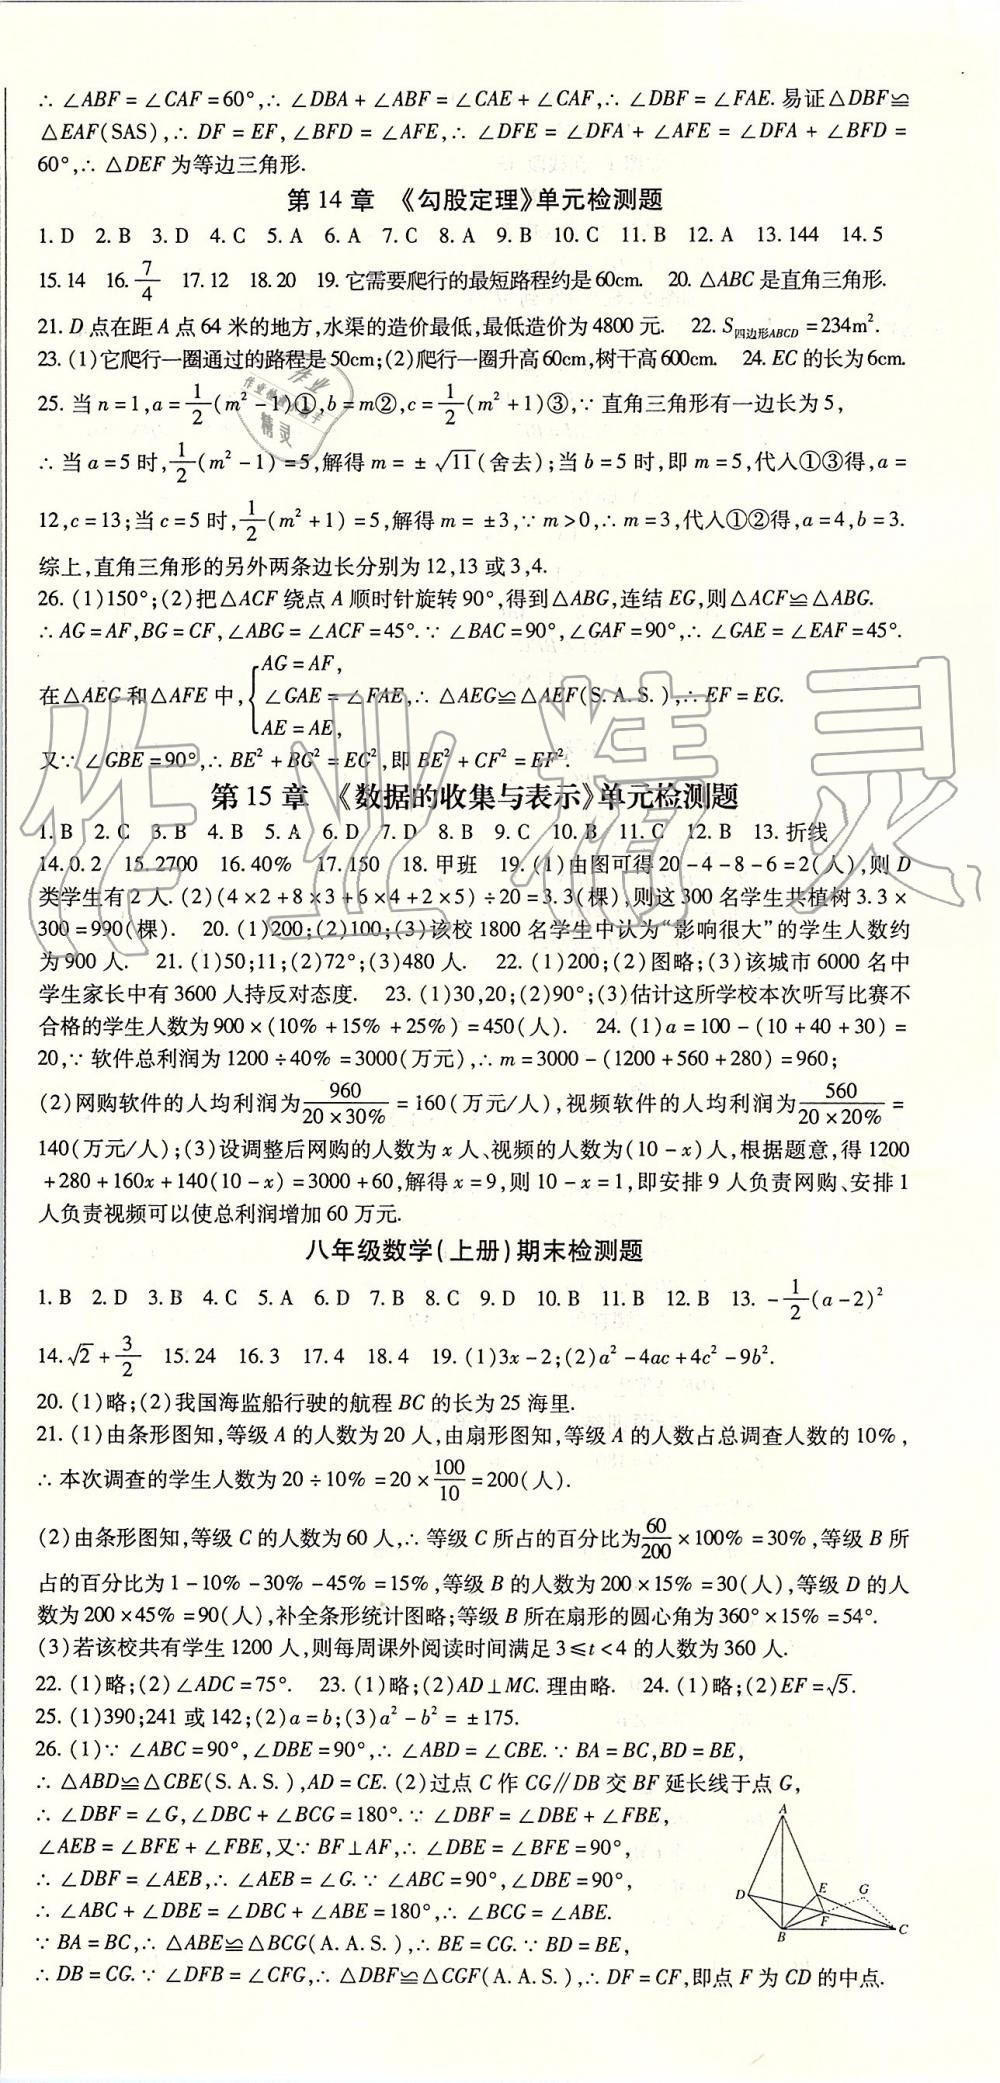 ∴ ∠ABF = ∠CAF = 60°,∴ ∠DBA + ∠ABF = ∠CAE + ∠CAF,∴ ∠DBF = ∠FAE. 易证△DBF≌
△EAF(SAS),∴ DF = EF, ∠BFD = ∠AFE,∴ ∠DFE = ∠DFA + ∠AFE = ∠DFA + ∠BFD =
60°,∴ △DEF 为等边三角形.
第 14 章 《勾股定理》单元检测题
1. D 2. B 3. D 4. C 5. A 6. A 7. C 8. A 9. B 10. C 11. B 12. A 13. 144 14. 5
15. 14 16. 7/4 17. 12 18. 20 19. 它需要爬行的最短路程约是 60cm. 20. △ABC 是直角三角形.
21. D 点在距 A 点 64 米的地方,水渠的造价最低,最低造价为 4800 元. 22. S四边形ABCD = 234m².
23. (1)它爬行一圈通过的路程是 50cm;(2)爬行一圈升高 60cm,树干高 600cm. 24. EC 的长为 6cm.
25. 当 n = 1,a = 1/2(m² - 1)①,b = m②,c = 1/2(m² + 1)③,∵ 直角三角形有一边长为 5,
∴ 当 a = 5 时,1/2(m² - 1) = 5,解得 m = ± √11(舍去);当 b = 5 时,即 m = 5,代入①③得,a =
12,c = 13;当 c = 5 时,1/2(m² + 1) = 5,解得 m = ±3,∵ m > 0,∴ m = 3,代入①②得,a = 4,b = 3.
综上,直角三角形的另外两条边长分别为 12,13 或 3,4.
26. (1)150°;(2)把△ACF 绕点 A 顺时针旋转 90°,得到△ABG,连结 EG,则△ACF≌△ABG.
∴ AG = AF,BG = CF,∠ABG = ∠ACF = 45°. ∵ ∠BAC = 90°,∠GAF = 90°,∴ ∠GAE = ∠EAF = 45°.
AG = AF,
在△AEG 和△AFE 中,{∠GAE = ∠FAE,∴ △AEG≌△AEF(S. A. S. ),∴ EF = EG.
AE = AE,
又∵ ∠GBE = 90°,∴ BE² + BG² = EG²,即 BE² + CF² = EF².
第 15 章 《数据的收集与表示》单元检测题
1. B 2. C 3. B 4. B 5. A 6. D 7. D 8. B 9. C 10. B 11. C 12. B 13. 折线
14. 0. 2 15. 2700 16. 40% 17. 150 18. 甲班 19. (1)由图可得 20 - 4 - 8 - 6 = 2(人),则 D
类学生有 2 人. (2)(4 × 2 + 8 × 3 + 6 × 4 + 2 × 5) ÷ 20 = 3. 3(棵),则这 300 名学生共植树 3. 3 ×
300 = 990(棵). 20. (1)200;(2)100;(3)该校 1800 名学生中认为“影响很大”的学生人数约
为 900 人. 21. (1)50;11;(2)72°;(3)480 人. 22. (1)200;(2)图略;(3)该城市 6000 名中
学生家长中有 3600 人持反对态度. 23. (1)30,20;(2)90°;(3)估计这所学校本次听写比赛不
合格的学生人数为 900 × (10% + 15% + 25%) = 450(人). 24. (1)a = 100 - (10 + 40 + 30) =
20,∵ 软件总利润为 1200 ÷ 40% = 3000(万元),∴ m = 3000 - (1200 + 560 + 280) = 960;
(2)网购软件的人均利润为 960/(20 × 30%) = 160(万元/人),视频软件的人均利润为 560/(20 × 20%) =
140(万元/人);(3)设调整后网购的人数为 x 人、视频的人数为(10 - x)人,根据题意,得 1200
+ 280 + 160x + 140(10 - x) = 3000 + 60,解得 x = 9,则 10 - x = 1,即安排 9 人负责网购、安排 1
人负责视频可以使总利润增加 60 万元.
八年级数学(上册)期末检测题
1. B 2. D 3. B 4. C 5. A 6. D 7. B 8. C 9. D 10. B 11. B 12. B 13. - 1/2(a - 2)²
14. √2 + 3/2 15. 24 16. 3 17. 4 18. 4 19. (1)3x - 2;(2)a² - 4ac + 4c² - 9b².
20. (1)略;(2)我国海监船行驶的航程 BC 的长为 25 海里.
21. (1)由条形图知,等级 A 的人数为 20 人,由扇形图知,等级 A 的人数占总调查人数的 10%,
∴ 本次调查的学生人数为 20 ÷ 10% = 20 × 100/10 = 200(人).
(2)由条形图知,等级 C 的人数为 60 人,∴ 等级 C 所占的百分比为 60/200 × 100% = 30%,等级 B 所
占的百分比为 1 - 10% - 30% - 45% = 15%,等级 B 的人数为 200 × 15% = 30(人),等级 D 的人
数为 200 × 45% = 90(人),补全条形统计图略;等级 B 所在扇形的圆心角为 360° × 15% = 54°.
(3)若该校共有学生 1200 人,则每周课外阅读时间满足 3 ≤ t < 4 的人数为 360 人.
22. (1)略;(2)∠ADC = 75°. 23. (1)略;(2)AD⊥MC. 理由略. 24. (1)略;(2)EF = √5.
25. (1)390;241 或 142;(2)a = b;(3)a² - b² = ± 175.
26. (1)∵ ∠ABC = 90°,∠DBE = 90°,∴ ∠ABD = ∠CBE. ∵ BA = BC,BD = BE,
∴ △ABD≌△CBE(S. A. S. ),AD = CE. (2)过点 C 作 CG∥DB 交 BF 延长线于点 G,
∴ ∠DBF = ∠G,∠DBC + ∠BCG = 180°. ∵ ∠DBF = ∠DBE + ∠FBE,
∠AEB = ∠BFE + ∠FBE,又∵ BF⊥AF,∴ ∠DBE = ∠BFE = 90°,
∴ ∠DBF = ∠AEB,∴ ∠AEB = ∠G. ∵ ∠ABC = 90°,∠DBE = 90°,
∴ ∠ABC + ∠DBE = ∠DBC + ∠ABE = 180°,∴ ∠BCG = ∠ABE.
∵ BA = BC,∴ △ABE≌△BCG(A. A. S. ),∴ BE = CG. ∵ BD = BE,
∴ DB = CG. ∵ ∠DFB = ∠CFG,∴ △DBF≌△CGF(A. A. S. ),∴ DF = CF,即点 F 为 CD 的中点.
A
D
E
G
F
B
C
作业精灵